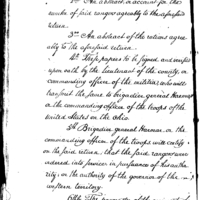 2nd An abstract in account for the
number of said rangers agreeably to the aforesaid
return.
3rd An abstract of the rations agree-
ably to the aforesaid return.
4th These papers to be signed, and verified
upon oath by the lieutenant of the county, or
commanding officer of the militia, who will
transmit the same to brigadier general Harmar
or the commanding officer of the troops of the
united States on the Ohio.
5th Brigadier general Harmar or the
commanding officer of the troops will certify
on the said return, that the said rangers were
ordered into service in pursuance of his autho-
rity, or the authority of the governor of the
western territory.
6th The